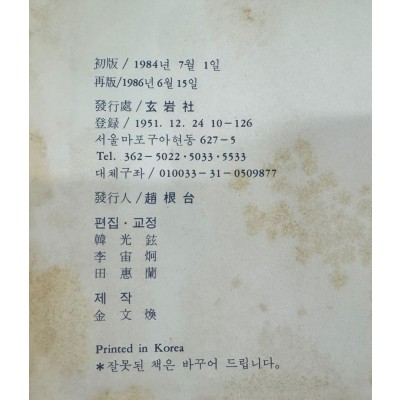 初版 / 1984년 7월 1일
再版/1986년 6월 15일
發行處 / 玄岩社
登録 / 1951. 12. 24 10-126
서울마포구아현동 627-5
Tel. 362-5022·5033·5533
대체구좌 / 010033-31-0509877
發行人 / 趙根台
편집·교정
韓光鉉
李宙炯
田惠蘭
제작
金文煥
Printed in Korea
*잘못된 책은 바꾸어 드립니다.